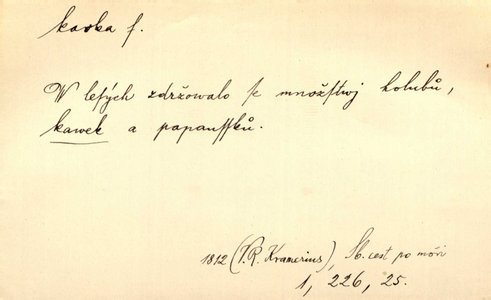 kavka f.
W lesých zdržowalo se množstwj holubů,
kawek a papaussků.
1812 (V. R. Kramerius), Sb. cest po moři
1, 226, 25.